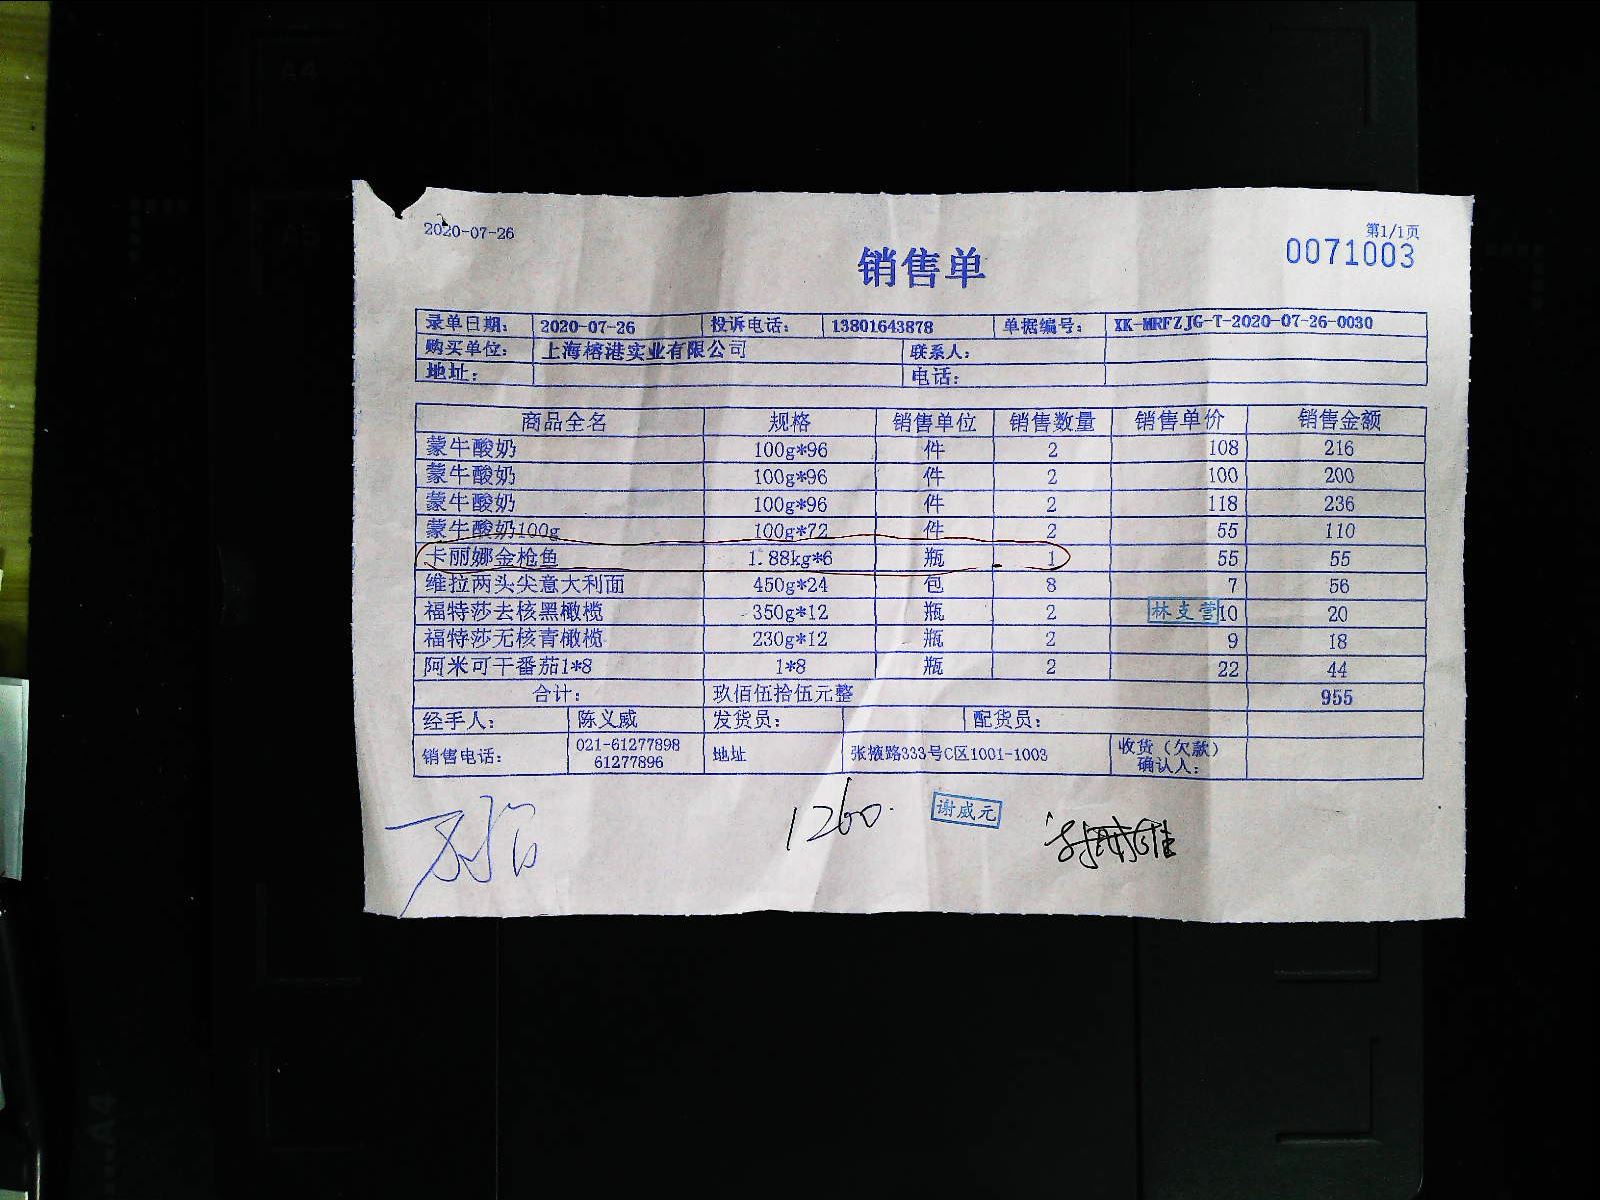 2020-07-26
第1/1页
0071003
销售单
录单日期: 2020-07-26 投诉电话: 13801643878 单据编号: XK-MRFZJG-T-2020-07-26-0030
购买单位: 上海榕港实业有限公司 联系人:
地址: 电话:
商品全名 规格 销售单位 销售数量 销售单价 销售金额
蒙牛酸奶 100g*96 件 2 108 216
蒙牛酸奶 100g*96 件 2 100 200
蒙牛酸奶 100g*96 件 2 118 236
蒙牛酸奶100g 100g*72 件 2 55 110
卡丽娜金枪鱼 1.88kg*6 瓶 1 55 55
维拉两头尖意大利面 450g*24 包 8 7 56
福特莎去核黑橄榄 350g*12 瓶 2 林支营 10 20
福特莎无核青橄榄 230g*12 瓶 2 9 18
阿米可干番茄1*8 1*8 瓶 2 22 44
合计: 玖佰伍拾伍元整 955
经手人: 陈义威 发货员: 配货员:
销售电话: 021-61277898 61277896 地址 张掖路333号C区1001-1003 收货（欠款）确认人:
1260.
谢威元